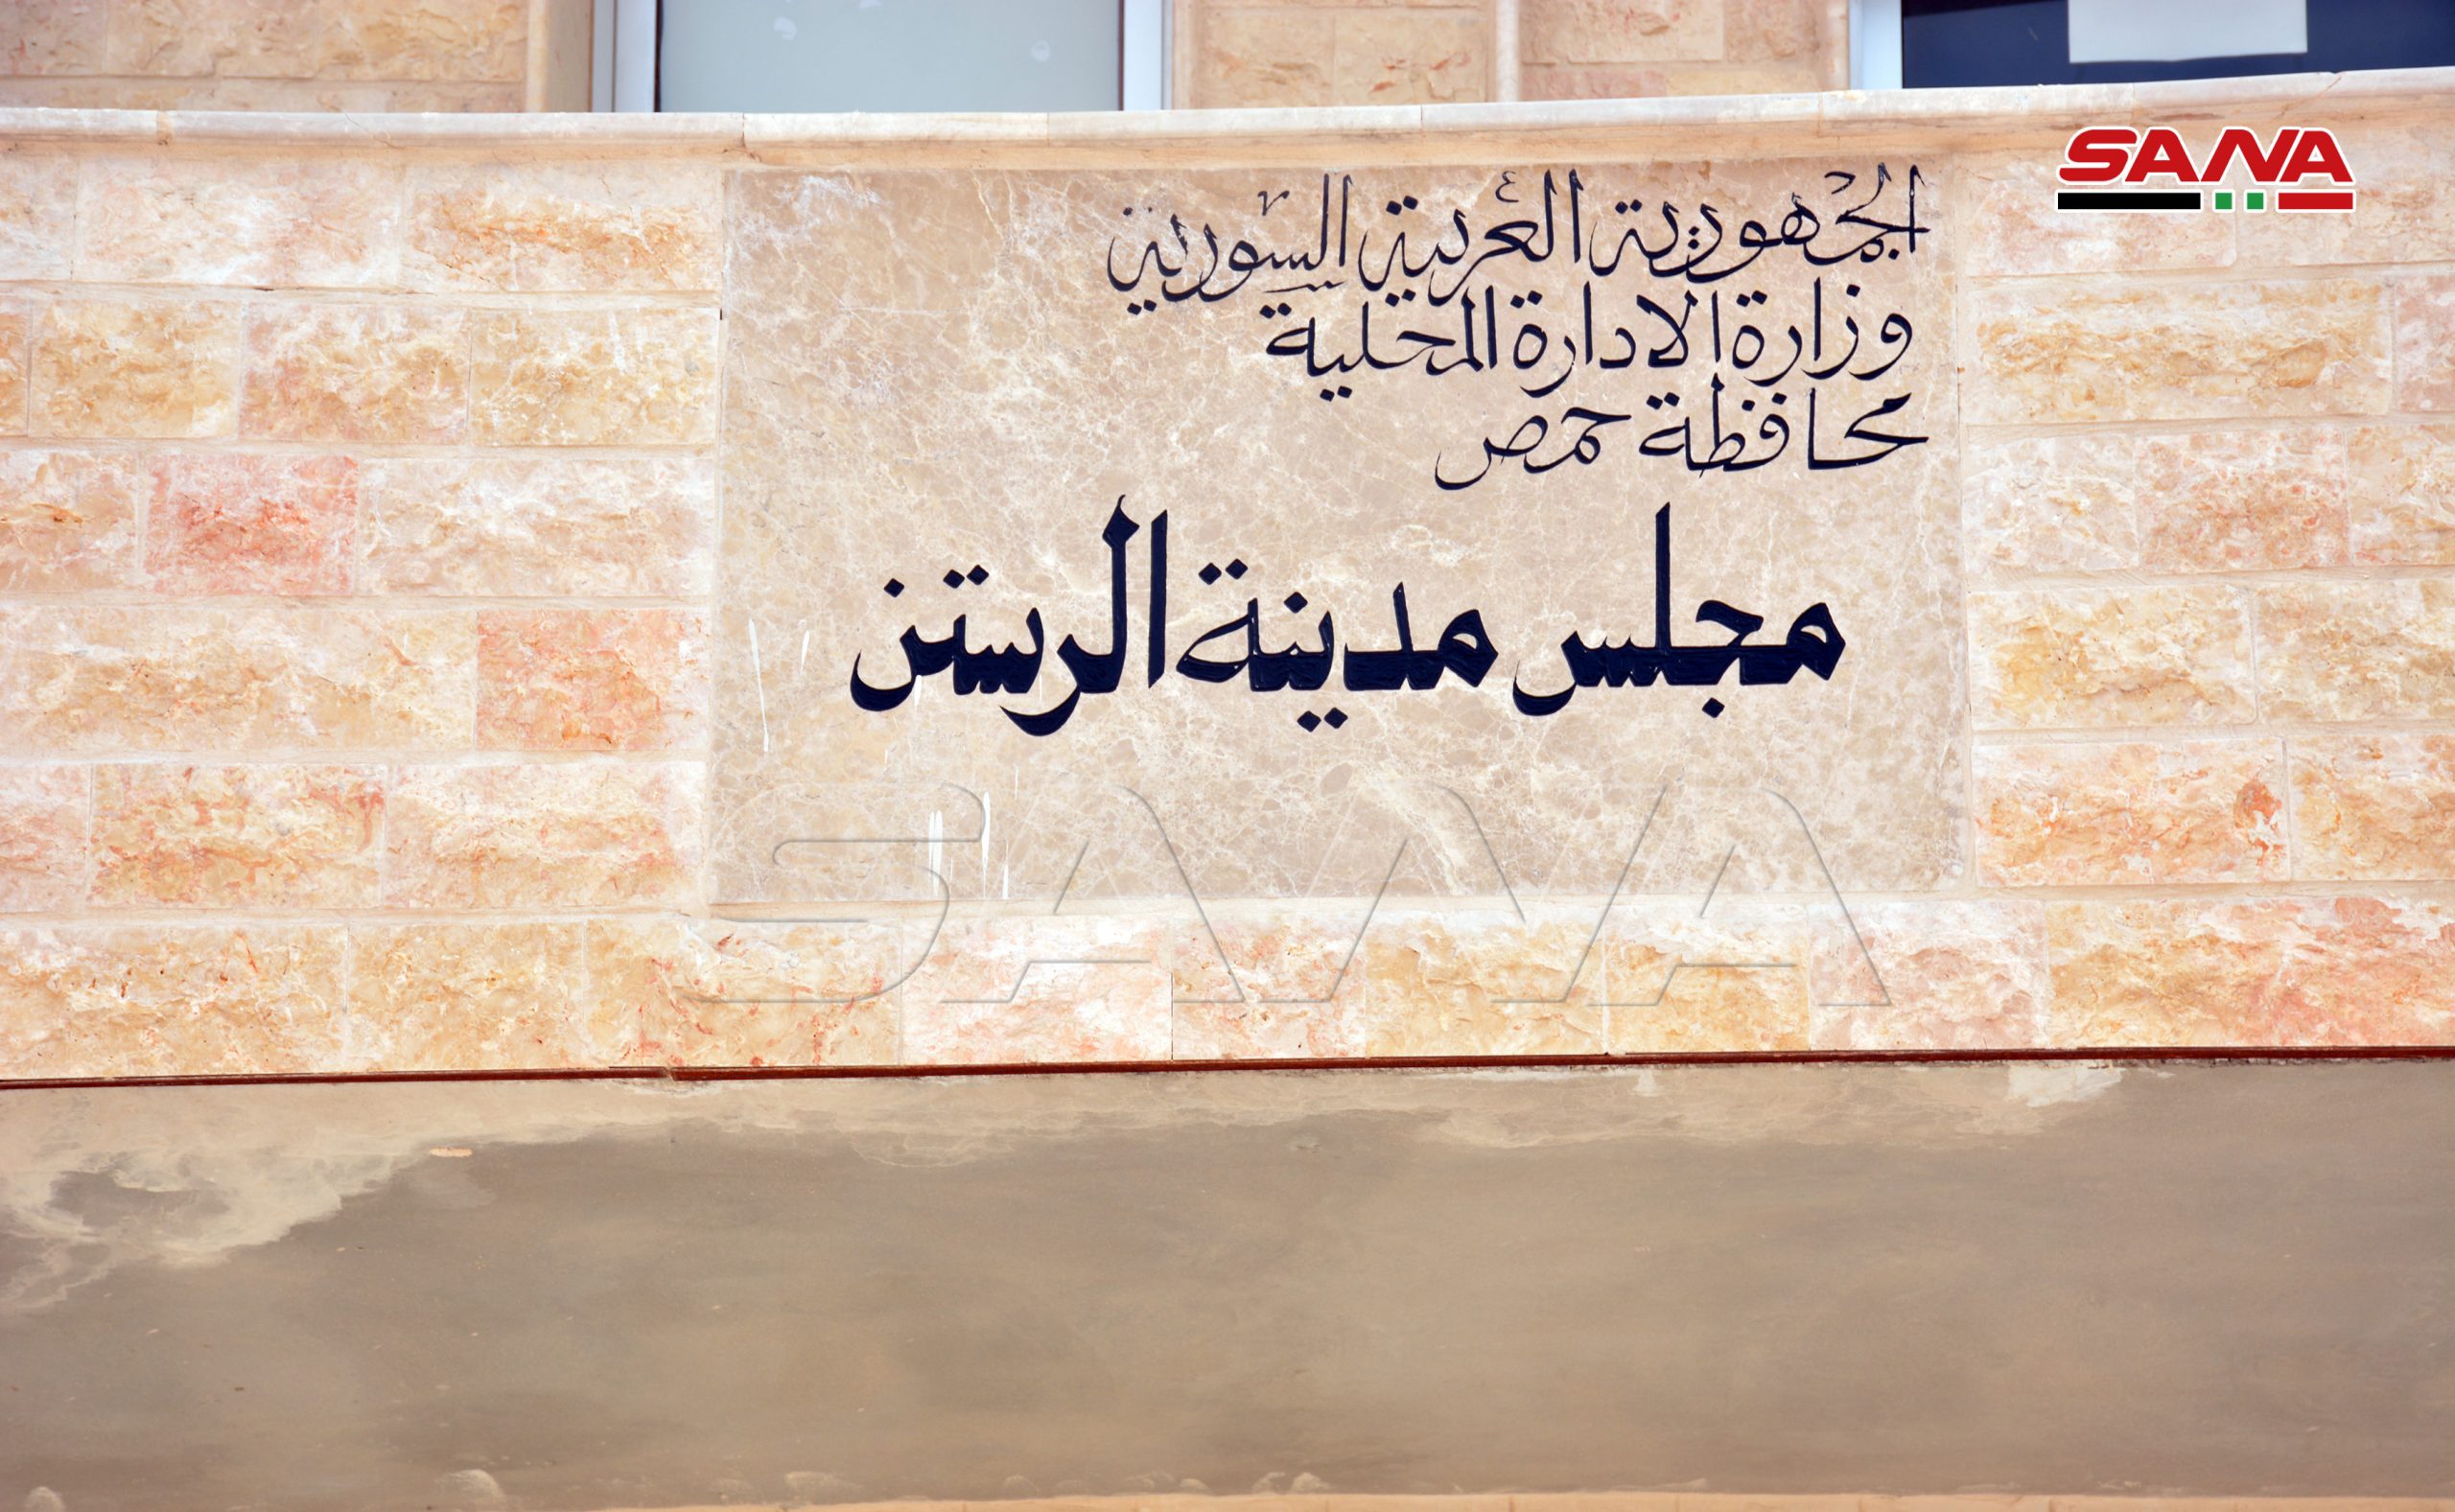 SANA
الجمهورية العربية السورية
وزارة الادارة المحلية
محافظة حمص
مجلس مدينة الرستن
SANA